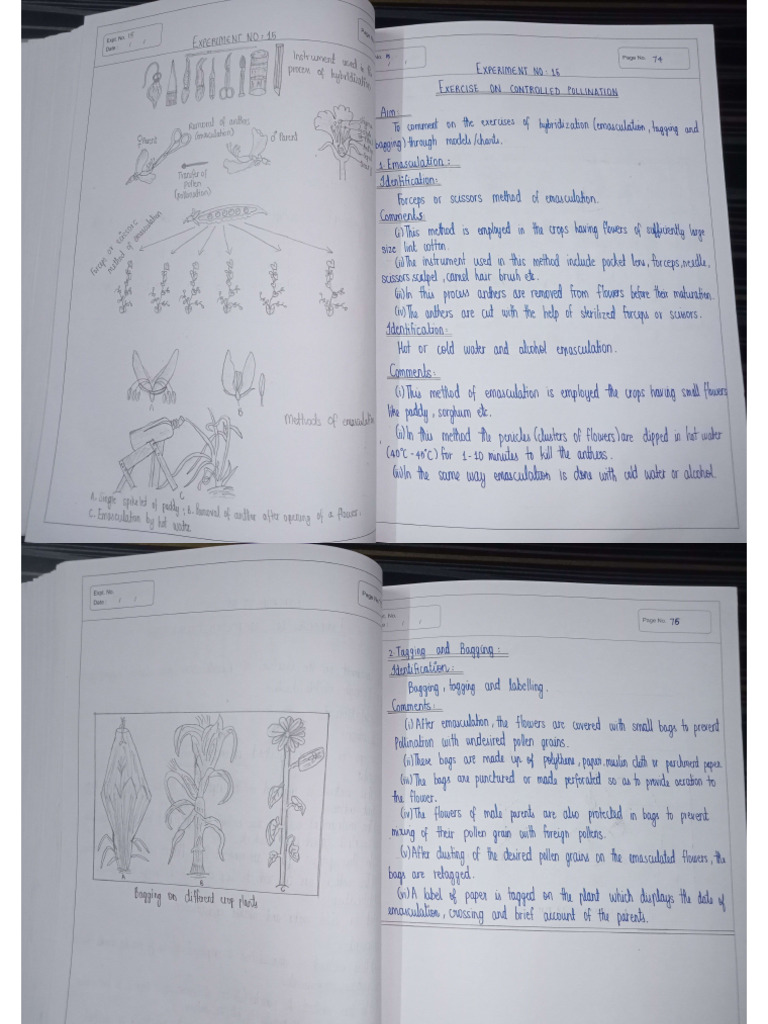 Expt. No. 15
Date : / /
EXPERIMENT NO: 15
Instrument used in
process of hybridization
Removal of anthers
(emasculation)
♀Parent
♂ Parent
Transfer of
pollen
(pollination)
Forceps or scissors
method of emasculation
B
Methods of emasculatio
C
A. Single spikelet of paddy; B. Removal of anther after opening of a flower.
C. Emasculation by hot water
Page No. 74
EXPERIMENT NO: 15
EXERCISE ON CONTROLLED POLLINATION
Aim:
To comment on the exercises of hybridization (emasculation, tagging and
bagging) through models/charts.
1. Emasculation :
Identification:
Forceps or scissors method of emasculation.
Comments:
(i) This method is employed in the crops having flowers of sufficiently large
size like cotton.
(ii) The instrument used in this method include pocket lens, forceps, needle,
scissors scalpel, camel hair brush etc.
(iii) In this process anthers are removed from flowers before their maturation.
(iv) The anthers are cut with the help of sterilized forceps or scissors.
Identification:
Hot or cold water and alcohol emasculation.
Comments:
(i) This method of emasculation is employed the crops having small flowers
like paddy, sorghum etc.
(ii) In this method the penicles (clusters of flowers) are dipped in hot water
for 1-10 minutes to kill the anthers.
(iii) In the same way emasculation is done with cold water or alcohol.
Expt. No.
Date : / /
A
B
C
Bagging on different crop plants
Page No. 75
2 Tagging and Bagging:
Identification:
Bagging, tagging and labelling.
Comments:
(i) After emasculation, the flowers are covered with small bags to prevent
Pollination with undesired pollen grains.
(ii) These bags are made up of polythene, paper, muslin cloth or parchment paper
(iii) The bags are punctured or made perforated so as to provide aeration to
the flower.
(iv) The flowers of male parents are also protected in bags to prevent
mixing of their pollen grain with foreign pollens.
(v) After dusting of the desired pollen grains on the emasculated flowers, the
bags are retagged.
(vi) A label of paper is tagged on the plant which displays the date of
emasculation, crossing and brief account of the parents.